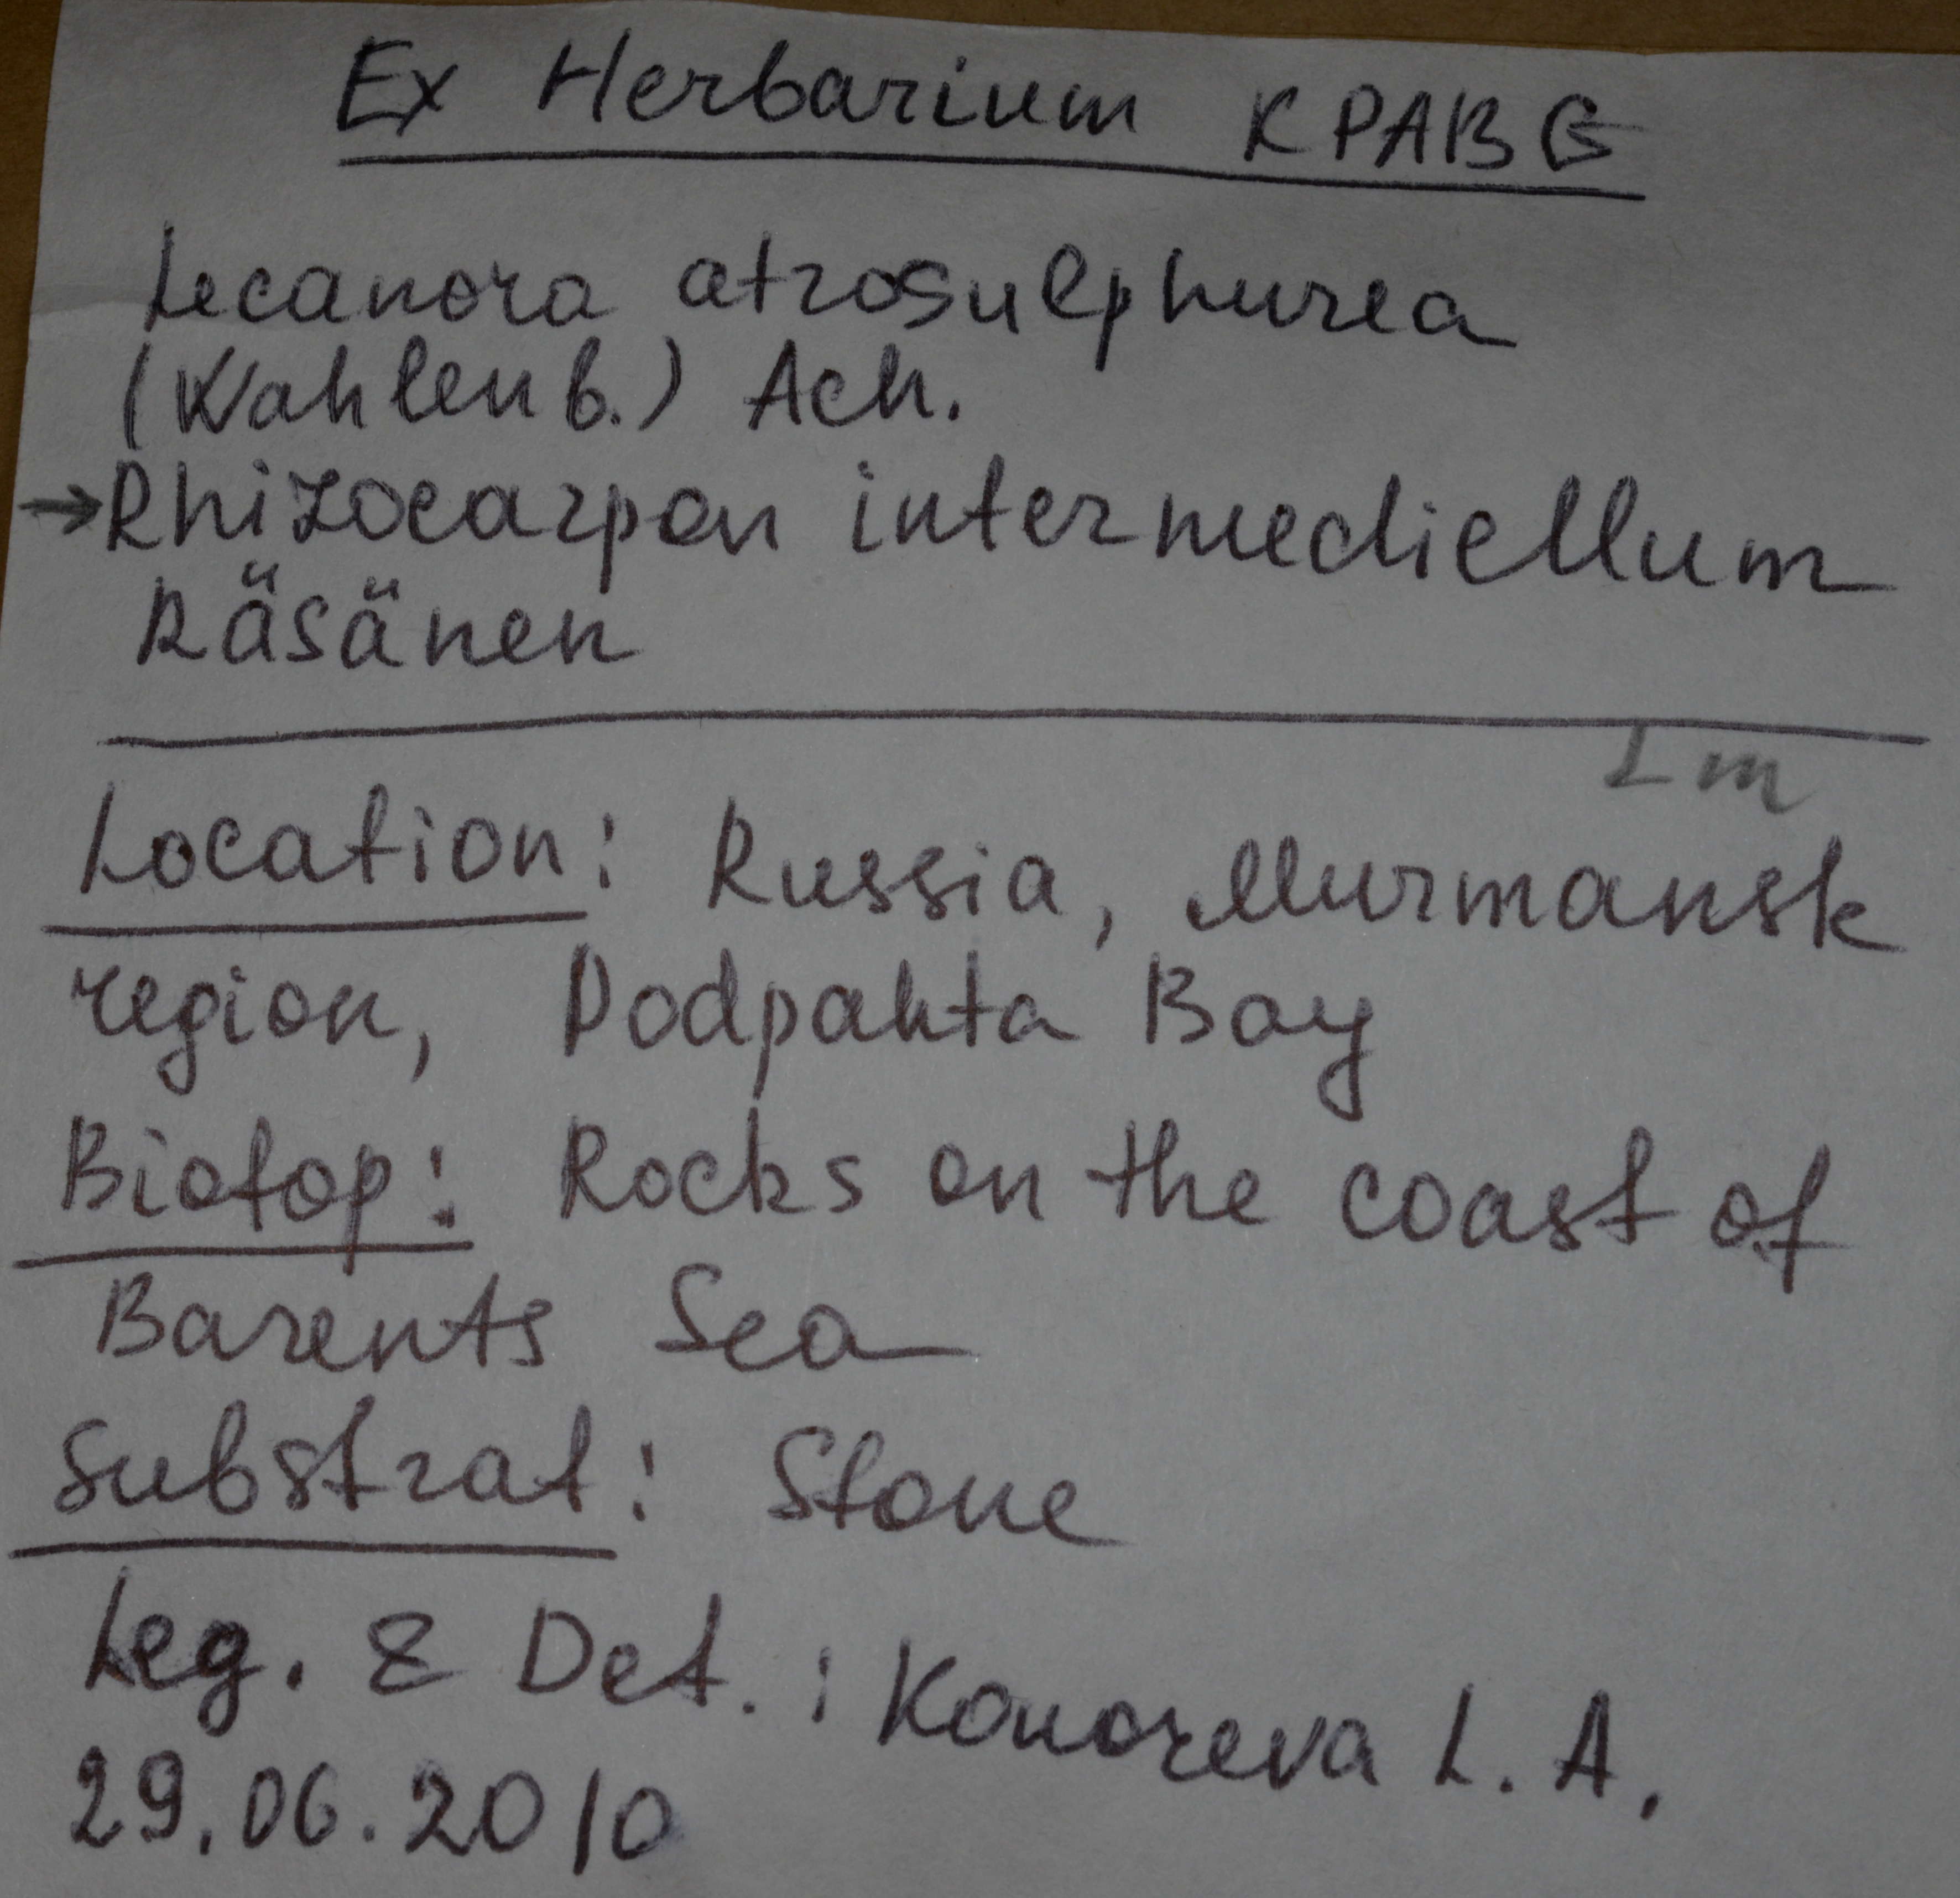 Ex Herbarium KPABG
Lecanora atrosulphurea
(Wahlenb.) Ach.
→Rhizocarpon intermediellum
Räsänen
Lm
Location: Russia, Murmansk
region, Podpahta Bay
Biotop: Rocks on the coast of
Barents Sea
Substrat: Stone
Leg. & Det.: Konoreva L. A.
29.06.2010